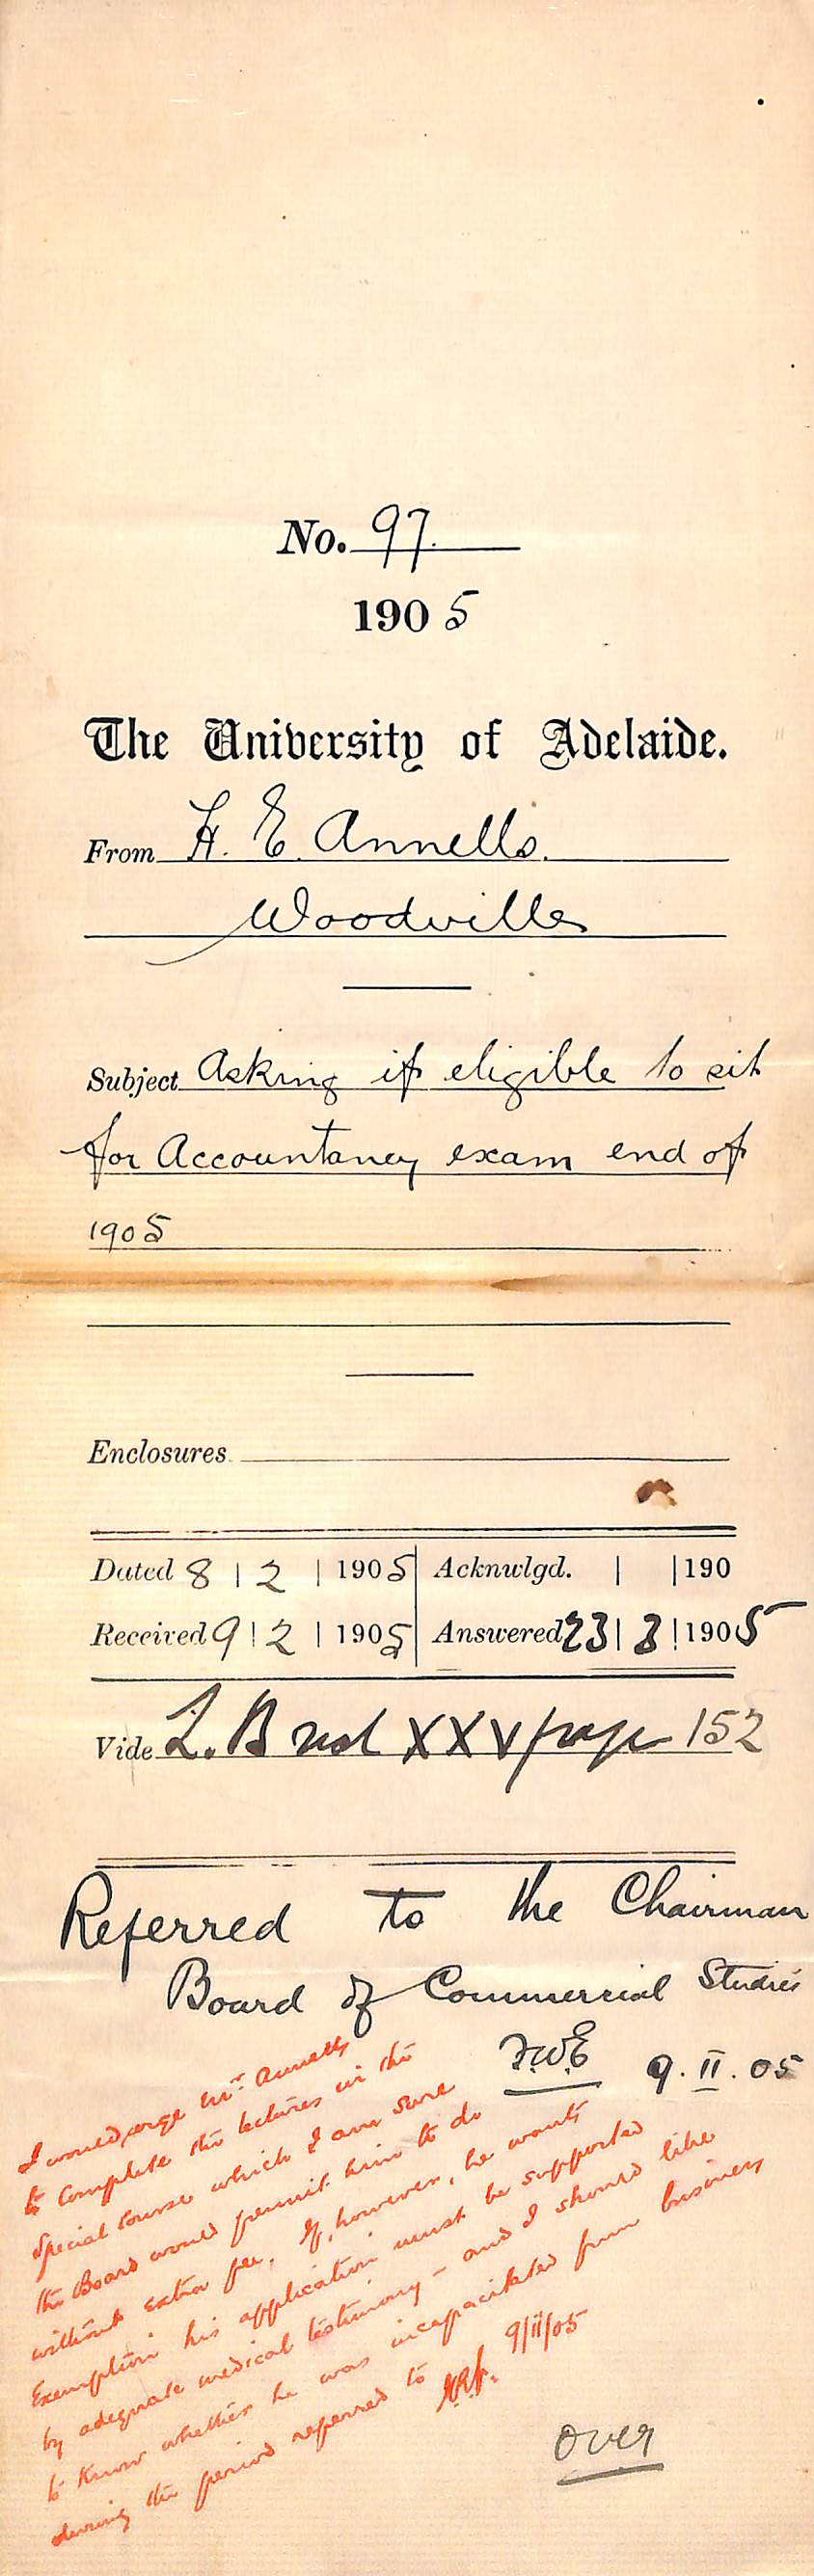 No. 97.
1905
The University of Adelaide.
From H. E. Annells.
Woodville
Subject Asking if eligible to sit
for Accountancy exam end of
1905
Enclosures
Dated 8 | 2 | 1905 Acknwlgd. | | 190
Received 9 | 2 | 1905 Answered 23 | 3 | 1905
Vide L. B vol XXV page 152
Referred to the Chairman
Board of Commercial Studies
F.W.E 9.II.05
I would urge Mr. Annells
to complete the lectures in the
special course which I am sure
the Board would permit him to do
without extra fee. If, however, he wants
exemption his application must be supported
by adequate medical testimony - and I should like
to know whether he was incapacitated from business
during the period referred to
9/II/05
Over